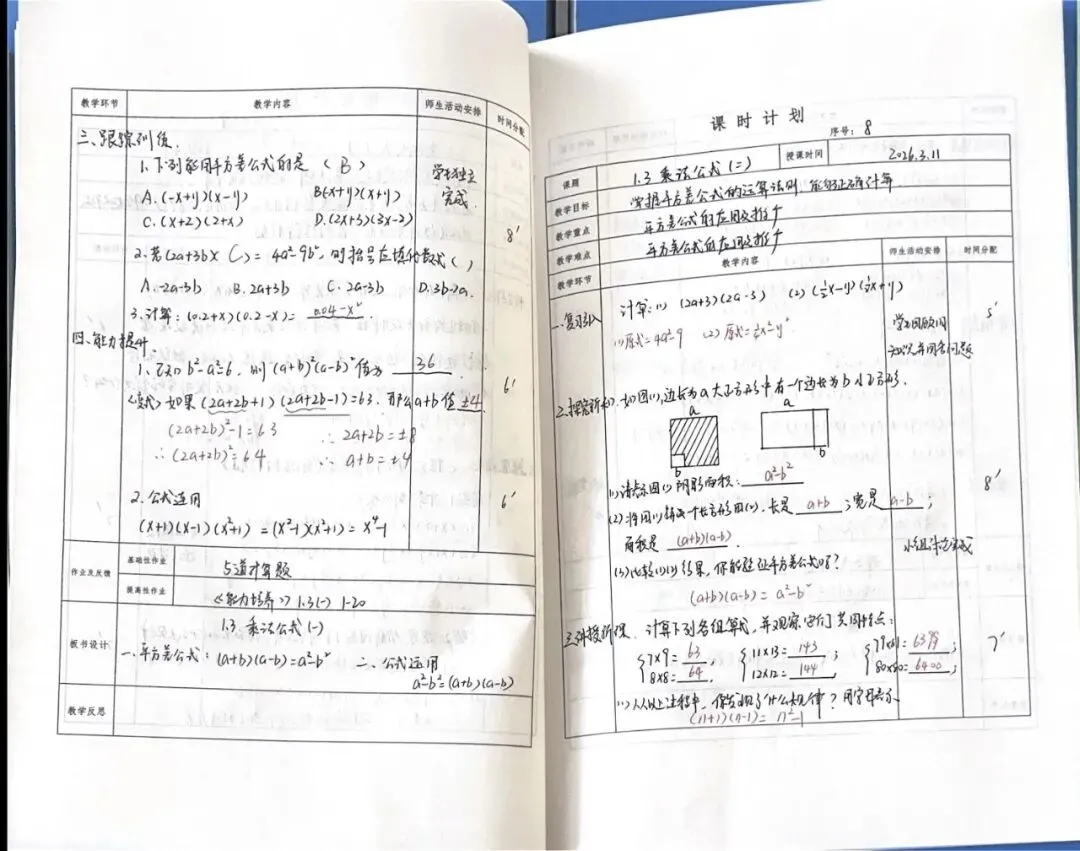 教学环节 教学内容 师生活动安排 时间分配
三、跟踪训练
1.下列能用平方差公式的是 (B)
学生独立完成.
A.(-x+y)(x-y) B(-x+y)(x+y)
C.(x+2)(2+x) D.(2x+3)(3x-2)
8′
2.若(2a+3b)( C )=4a²-9b²,则括号应填代数式( )
A.-2a-3b B.2a+3b C.2a-3b D.3b-2a.
3.计算:(0.2+x)(0.2-x)= 0.04-x²
四、能力提升
1.已知b²-a²=6,则(a+b)²(a-b)²值为 36
6′
<变式>如果(2a+2b+1)(2a+2b-1)=63.那么a+b值 ±4
(2a+2b)²-1=63 ∴2a+2b=±8
∴(2a+2b)²=64 ∴a+b=±4
2.公式运用
6′
(x+1)(x-1)(x²+1)=(x²-1)(x²+1)=x⁴-1
作业及反馈
基础性作业 5道计算题
提高性作业 《能力培养》1.3(一) 1-20
板书设计
1.3乘法公式(一)
一.平方差公式:(a+b)(a-b)=a²-b² 二、公式运用
a²-b²=(a+b)(a-b)
教学反思
课时计划
序号:8
课题 1.3 乘法公式(二) 授课时间 2026.3.11
教学目标 掌握平方差公式的运算法则,能够正确计算
教学重点 平方差公式的应用及推广
教学难点 平方差公式的应用及推广
教学环节 教学内容 师生活动安排 时间分配
一.复习引入 计算:(1) (2a+3)(2a-3) (2) (½x-y)(½x+y)
5′
(1)原式=4a²-9 (2)原式=¼x²-y²
学生回顾旧知识并回答问题
二.探究新知.如图(1),边长为a大正方形中有一个边长为b小正方形.
a a
b b
(1)请表示图(1)阴影面积: a²-b²
8′
(2)将图(1)拼成一个长方形图(2).长是 a+b ;宽是 a-b ;
面积是 (a+b)(a-b) .
小组讨论完成
(3)比较(1)(2)结果,你能验证平方差公式吗?
(a+b)(a-b)=a²-b²
三.讲授新课.计算下列各组算式,并观察它们共同特点:
7×9= 63 ; 11×13= 143 ; 79×81= 6399 ;
8×8= 64 ; 12×12= 144 ; 80×80= 6400 ;
7′
(1)从以上过程中,你发现了什么规律?用字母表示
(n+1)(n-1)=n²-1